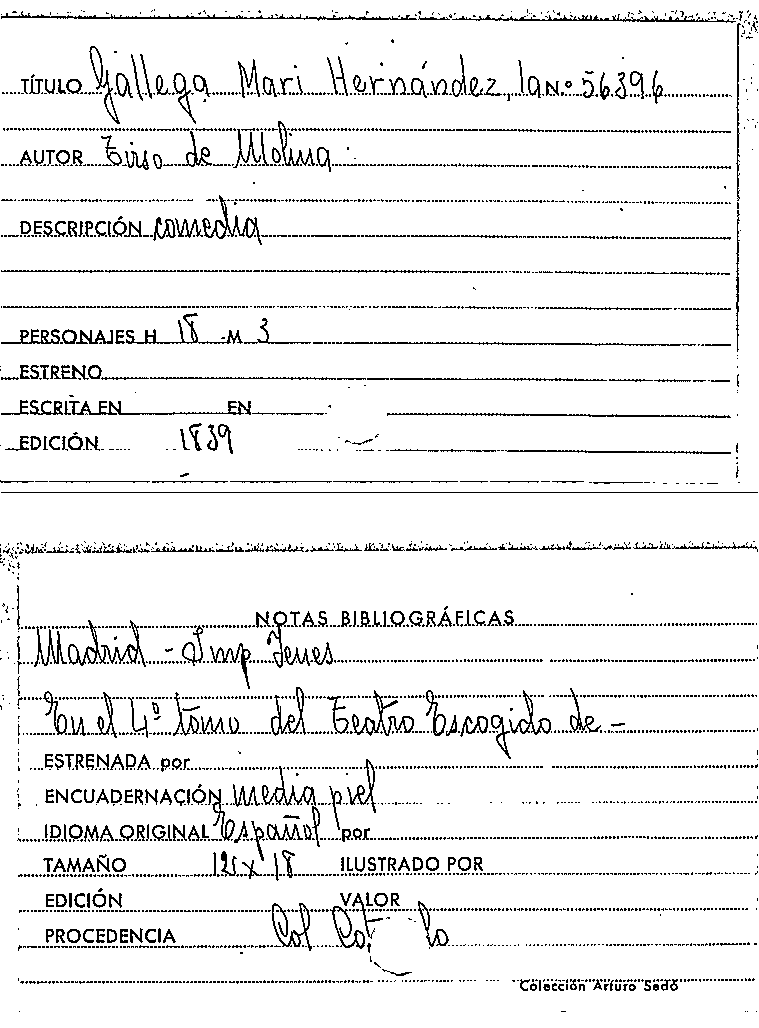 TÍTULO Gallega Mari Hernández, la N.º 56396
AUTOR Tirso de Molina
DESCRIPCIÓN comedia
PERSONAJES H 18 M 3
ESTRENO
ESCRITA EN EN
EDICIÓN 1839
NOTAS BIBLIOGRÁFICAS
Madrid - Imp Yenes
En el 4º tomo del Teatro Escogido de -
ESTRENADA por
ENCUADERNACIÓN media piel
IDIOMA ORIGINAL Español por
TAMAÑO x 18 ILUSTRADO POR
EDICIÓN VALOR
PROCEDENCIA Col
Colección Arturo Sedó